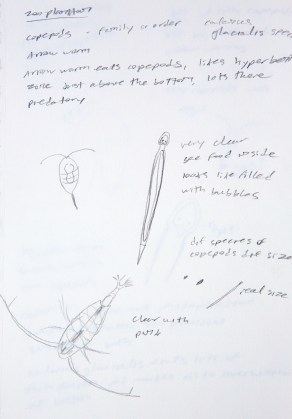 zoo plankton
copepods - family or order
calanus
glacialis
Arrow worm
Arrow worm eats copepods, likes hyperbenthic
zone just above the bottom, lots there
predatory
very clear
see food inside
looks like filled
with bubbles
dif species of
copepods dif size
real size
clear with